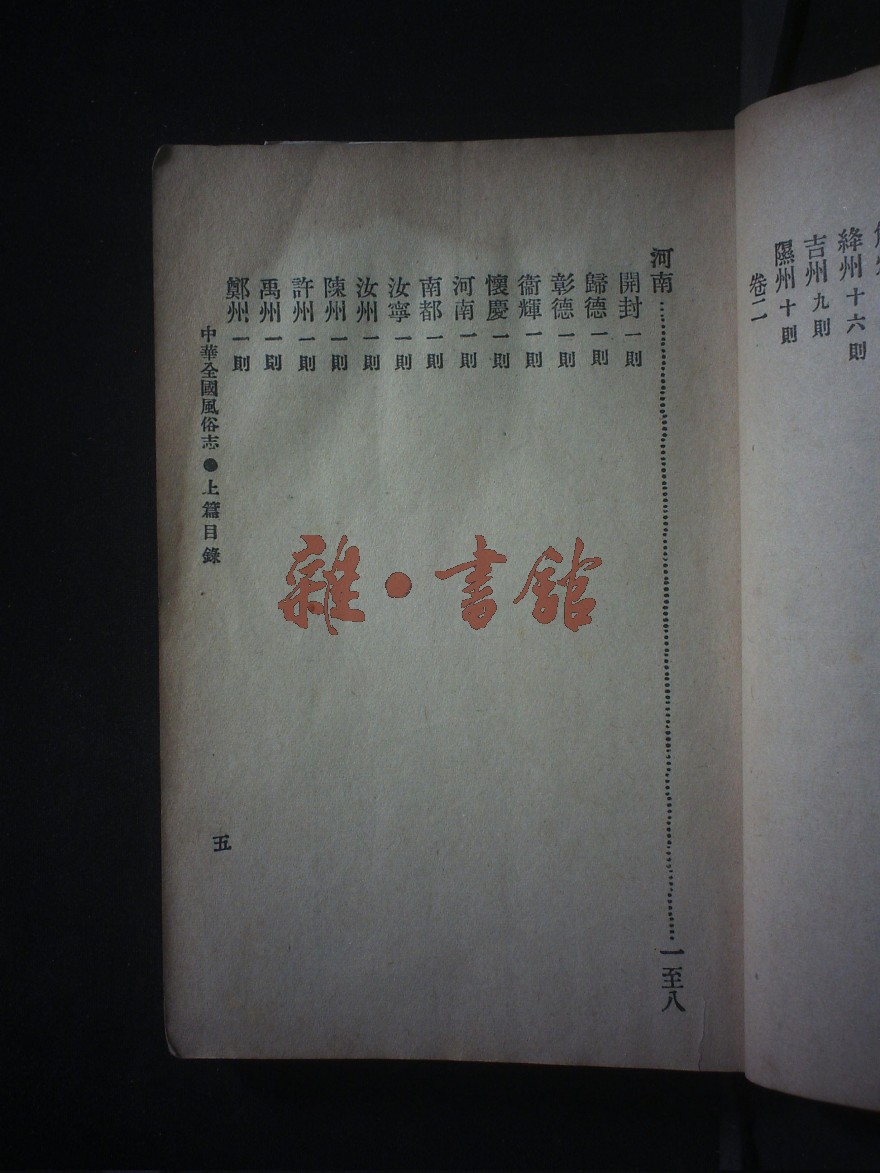 絳州 十六則
吉州 九則
隰州 十則
卷二
河南……一至八
開封 一則
歸德 一則
彰德 一則
衞輝 一則
懷慶 一則
河南 一則
南都 一則
汝寧 一則
汝州 一則
陳州 一則
許州 一則
禹州 一則
鄭州 一則
中華全國風俗志●上篇目錄
五
雜·書館